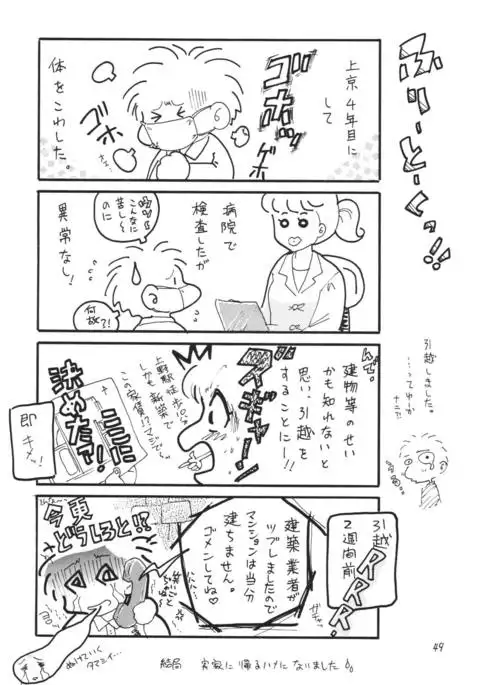 ふりーとーくっ!!
上京4年目に
して
体をこわした。
ゴホッ
ゴホ
ゲホ
病院で
検査したが
異常なし!
こんなに
苦し〜
のに
何故?!
んで。
建物等のせい
かも知れないと
思い、引越を
することにー!!
上野駅徒歩
しかも新築で
この家賃!?マジで
ここに
決めたァ!!
即キメッ!
引越
2週間前
RRR!
ガチャ
建築業者が
ツブレましたので
マンションは当分
建ちません。
ゴメンしてね♡
今更
どうしろと!?
ぬけていく
タマシイ…
結局 実家に帰るハメになりました
引越しました。
…ってゆーか
ナニ?!
49